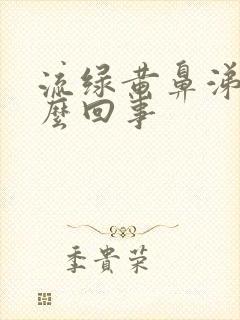 流绿黄鼻涕
麼回事
季貴荣